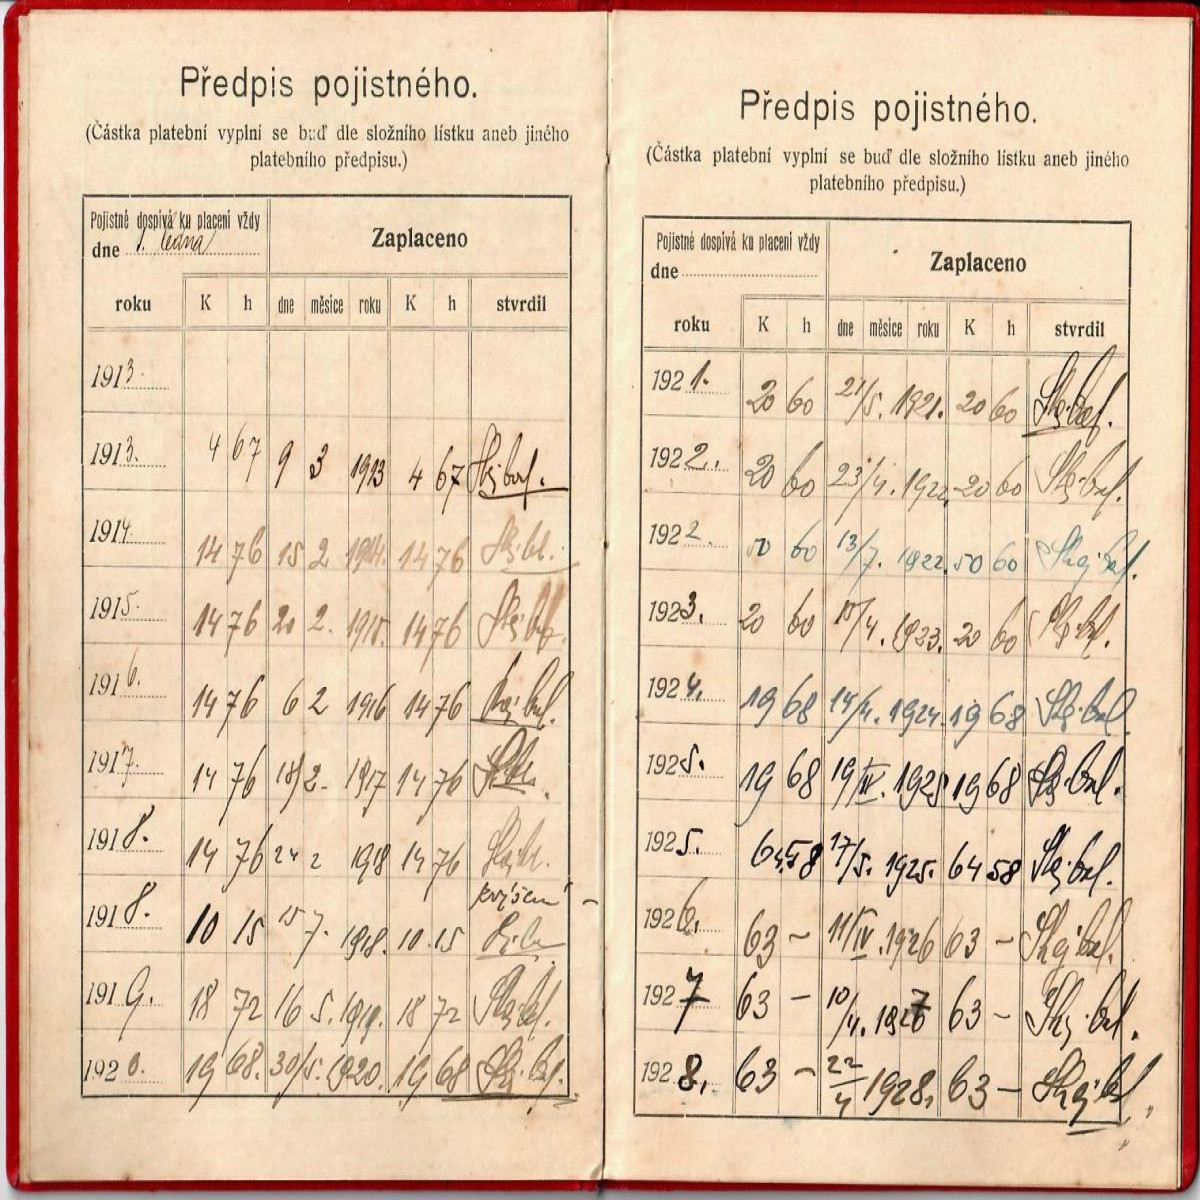 Předpis pojistného.
(Částka platební vyplní se buď dle složního lístku aneb jiného
platebního předpisu.)
Pojistné dospívá ku placení vždy
dne 1. ledna
Zaplaceno
roku K h dne měsíce roku K h stvrdil
1913.
1913. 4 67 9 3 1913 4 67
1914. 14 76 15 2 1914. 14 76
1915. 14 76 20 2. 1915. 14 76
1916. 14 76 6 2 1916 14 76
1917. 14 76 18/2. 1917 14 76
1918. 14 76 24 2 1918 14 76
1918. 10 15 15 7. 1918. 10.15
1919. 18 72 16 5. 1919. 18 72
1920. 19 68. 30/5. 1920. 19 68
Předpis pojistného.
(Částka platební vyplní se buď dle složního lístku aneb jiného
platebního předpisu.)
Pojistné dospívá ku placení vždy
dne
Zaplaceno
roku K h dne měsíce roku K h stvrdil
1921. 20 60 21/5. 1921. 20 60
1922. 20 60 23/4. 1922. 20 60
1922. 50 60 13/7. 1922. 50 60
1923. 20 60 15/4. 1923. 20 60
1924. 19 68 14/4. 1924. 19 68
1925. 19 68 19/IV. 1925 19 68
1925. 64,58 17/5. 1925. 64 58
1926. 63 – 11/IV. 1926 63 –
1927 63 – 10/4. 1927 63 –
1928. 63 – 22/4 1928. 63 –